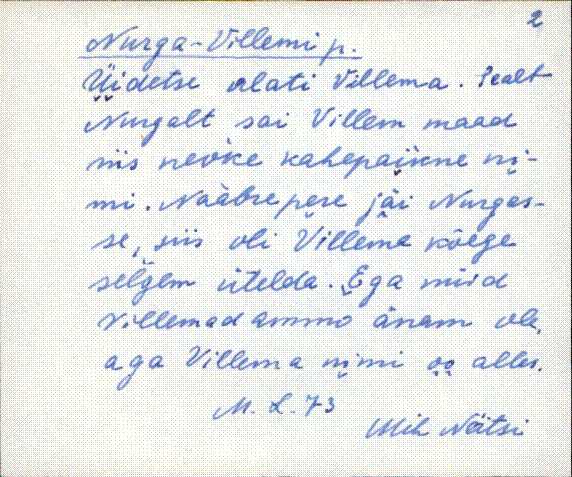 2
Nurga-Villemi p.
Üidetse alati Villema. Sealt
Nurgalt sai Villem maad
siis nevike kahepaikne ni-
mi. Naabrepere jäi Nurgas-
se, siis oli Villema kõege
selgem ütelda. Ega nüid
Villemad ammo änam ole,
aga Villema nimi oo alles.
M. L. 73
Mih Nätsi